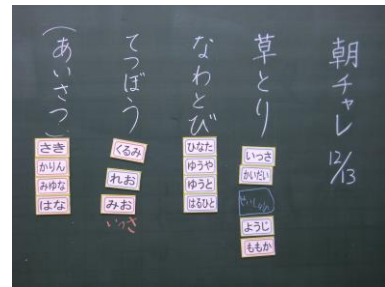 朝チャレ 12/13
草とり
いっさ
かいだい
せいしゅん
ようじ
ももか
なわとび
ひなた
ゆうや
ゆうと
はるひと
てつぼう
くるみ
れお
みお
いっさ
(あいさつ)
さき
かりん
みゆな
はな